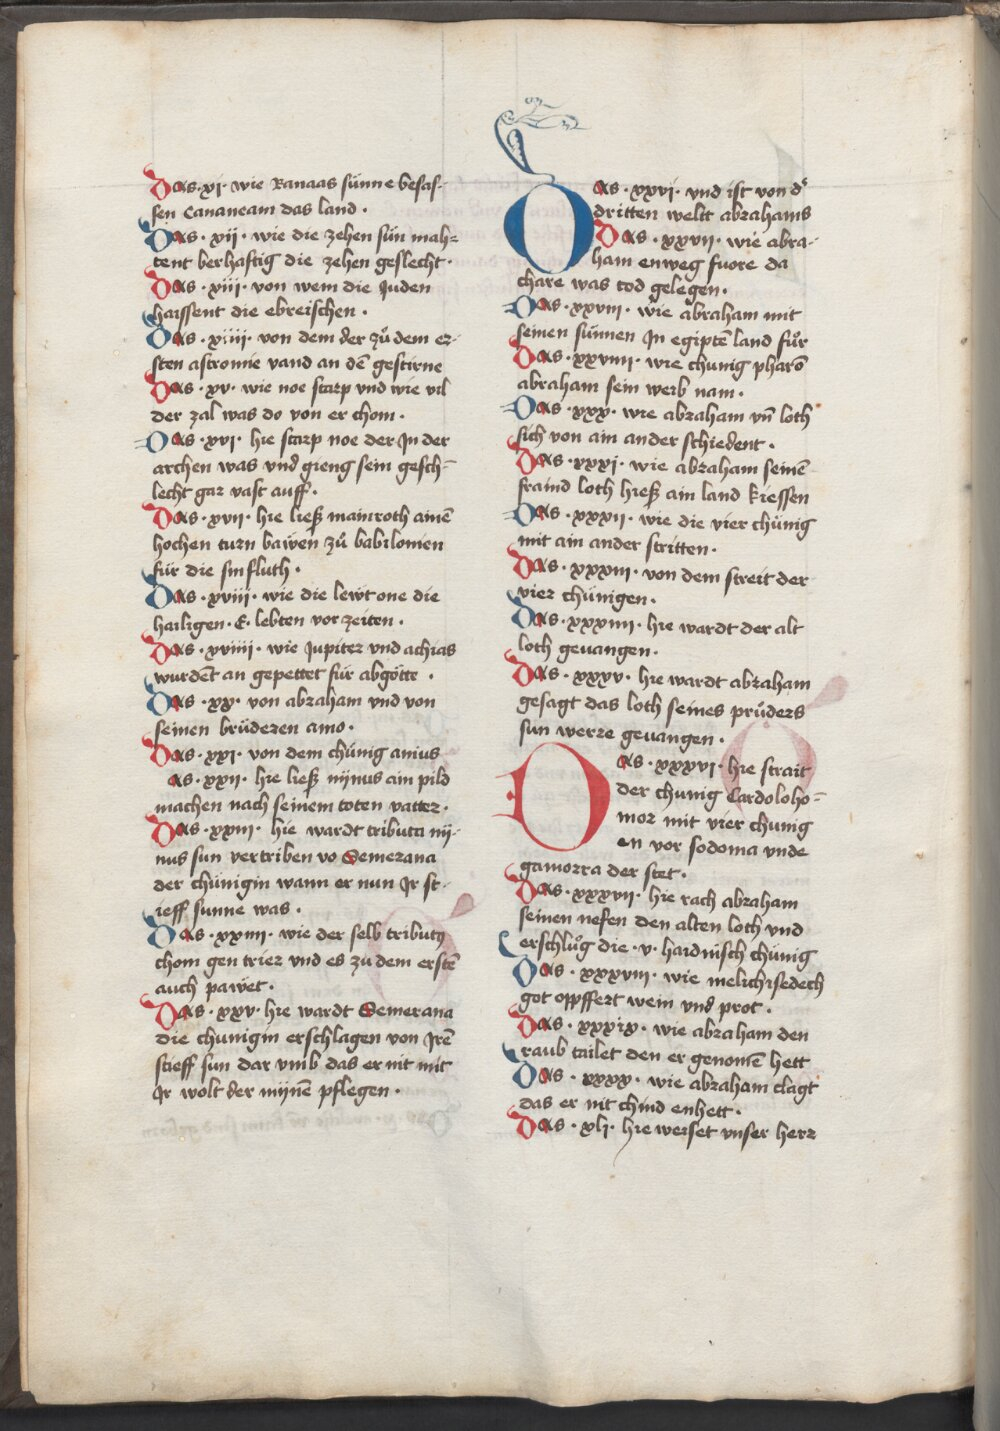 Das · xi · wie Kanaas súnne besas-
sen Cananeam das land ·
Das · xii · wie die zehen sún mah=
tent berhaftig die zehen geslecht ·
Das · xiii · von wem die Juden
haissent die ebreischen ·
Das · xiiii · von dem der zů dem er-
sten astromie vand an dē gestirne
Das · xv · wie noe starp vnd wie vil
der zal was do von er chom ·
Das · xvi · hie starp noe der Jn der
archen was vnd gieng sein gesch=
lecht gar vast auff ·
Das · xvii · hie ließ mainroth ainē
hochen turn bawen zů babilonien
für die sinfluth ·
Das · xviii · wie die lewt one die
hailigen · E · lebten vor zeiten ·
Das · xviiii · wie Jupiter vnd achias
wurdēt an gepettet für abgötte ·
Das · xx · von abraham vnd von
seinen brüderen amo ·
Das · xxi · von dem chúnig anius
as · xxii · hie ließ nijnus ain pild
machen nach seinem toten vatter ·
Das · xxiii · hie wardt tributa nij-
nus sun vertriben vo Semerana
der chúnigin wann er nun Jr st-
ieff sunne was ·
Das · xxiiii · wie der selb tributꝰ
chom gen trier vnd es zu dem erstē
auch pawet ·
Das · xxv · hie wardt Semerana
die chunigin erschlagen von Jrē
stieff sun dar vmb das er nit mit
Jr wolt der mijnē pflegen ·
Das · xxvi · vnd ist von d᷑
dritten weltt abrahams
Das · xxvii · wie abra-
ham enweg fuore da
chare was tod gelegen ·
Das · xxviii · wie abraham mit
seinen súnnen Jn egiptē land fůr
Das · xxviiii · wie chunig pharō
abraham sein weib nam ·
Das · xxx · wie abraham vn̄ loth
sich von ain ander schiedent ·
Das · xxxi · wie abraham seinē
fraind loth hieß ain land kiessen
Das · xxxii · wie die vier chúnig
mit ain ander stritten ·
Das · xxxiii · von dem streit der
vier chúnigen ·
Das · xxxiiii · hie wardt der alt
loth gevangen ·
Das · xxxv · hie wardt abraham
gesagt das loth seines průders
sun werre gevangen ·
Das · xxxvi · hie strait
der chunig Cardoloho=
mor mit vier chunig
en vor sodoma vnde
gamorra der stet ·
Das · xxxvii · hie rach abraham
seinen nefen den alten loth vnd
erschlůg die · v · hardnisch chúnig
Das · xxxviii · wie melichisedech
got oppffert wein vnd prot ·
Das · xxxix · wie abraham den
raub tailet den er genomē hett
Das · xxxx · wie abraham clagt
das er nit chind enhett ·
Das · xli · hie weiset vnser herr